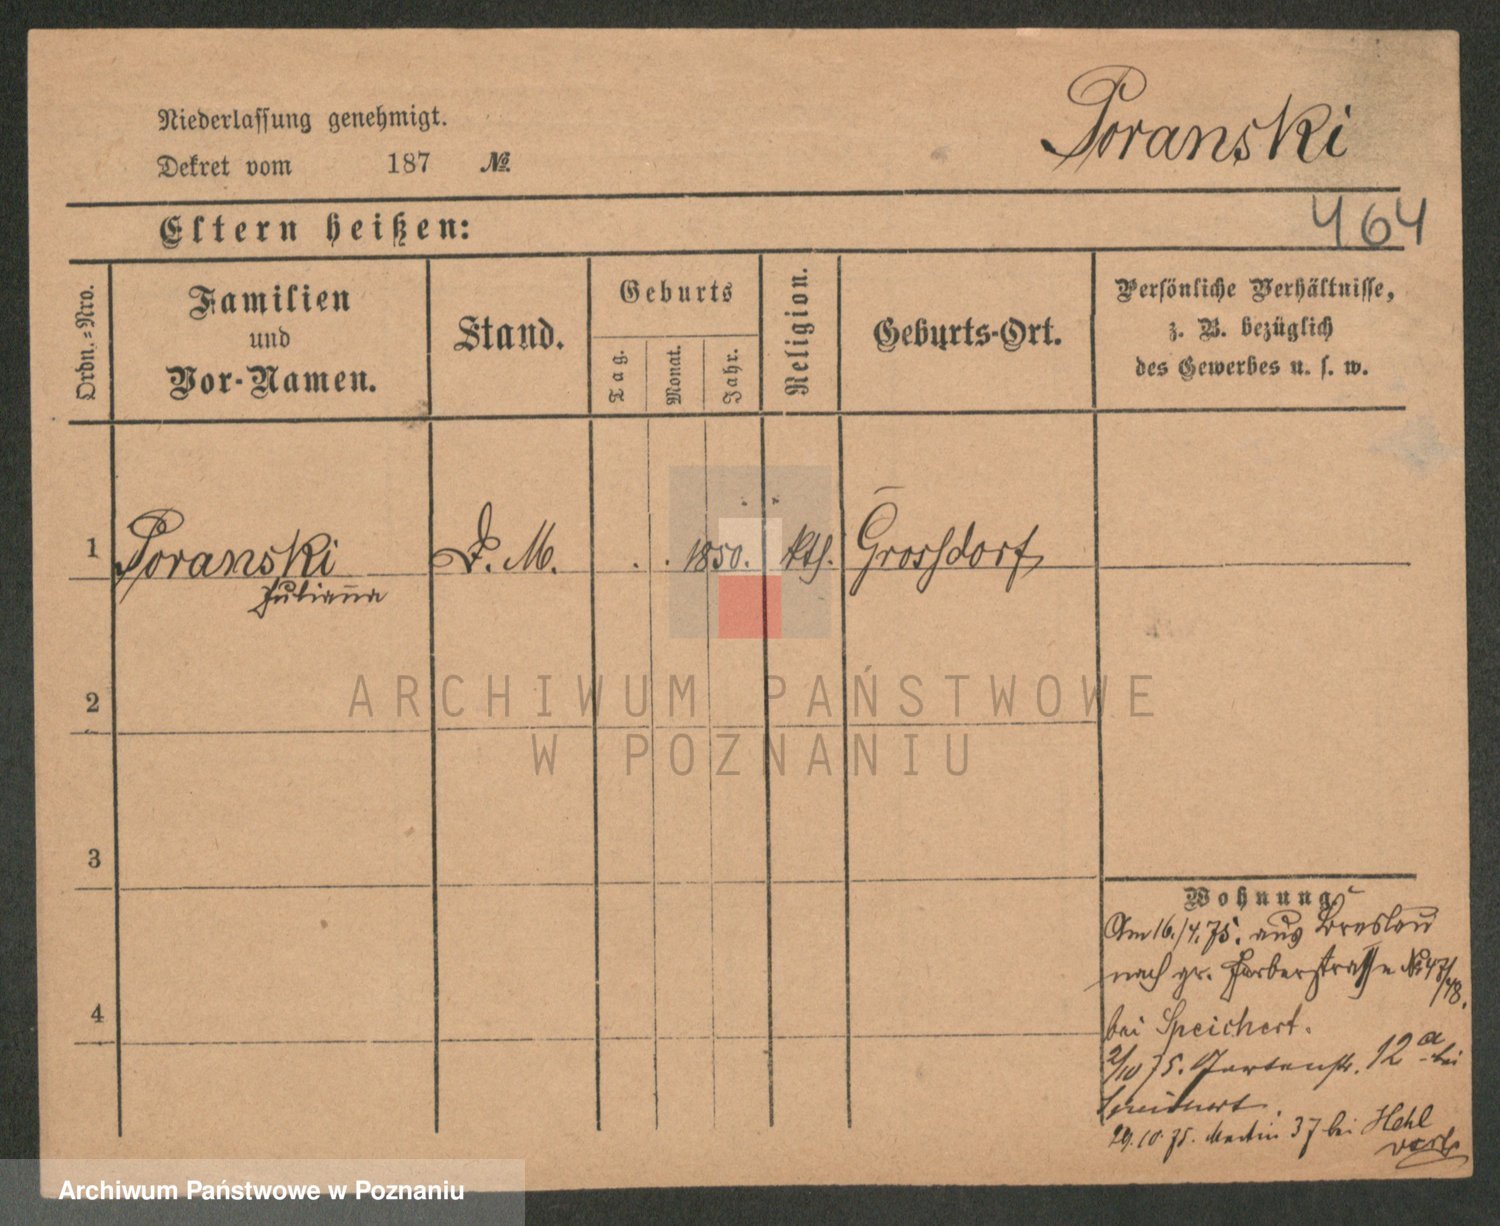 Poranski
Niederlassung genehmigt.
Dekret vom 187 №
464
Eltern heißen:
Ordn.=Nro.
Familien
und
Vor-Namen.
Stand.
Geburts
Tag.
Monat.
Jahr.
Religion.
Geburts-Ort.
Persönliche Verhältnisse,
z. B. bezüglich
des Gewerbes u. s. w.
1 Poranski D. M. . . 1850. kth. Grossdorf
Juliana
2
ARCHIWUM PAŃSTWOWE
W POZNANIU
3
Wohnung.
Am 16./4.75. aus Breslau
nach gr. Gerberstrasse No 47/48.
4
bei Speichert.
2/10 75. Gartenstr. 12 a bei
Speichert.
29.10.75. Martin 37 bei Hehl
Archiwum Państwowe w Poznaniu